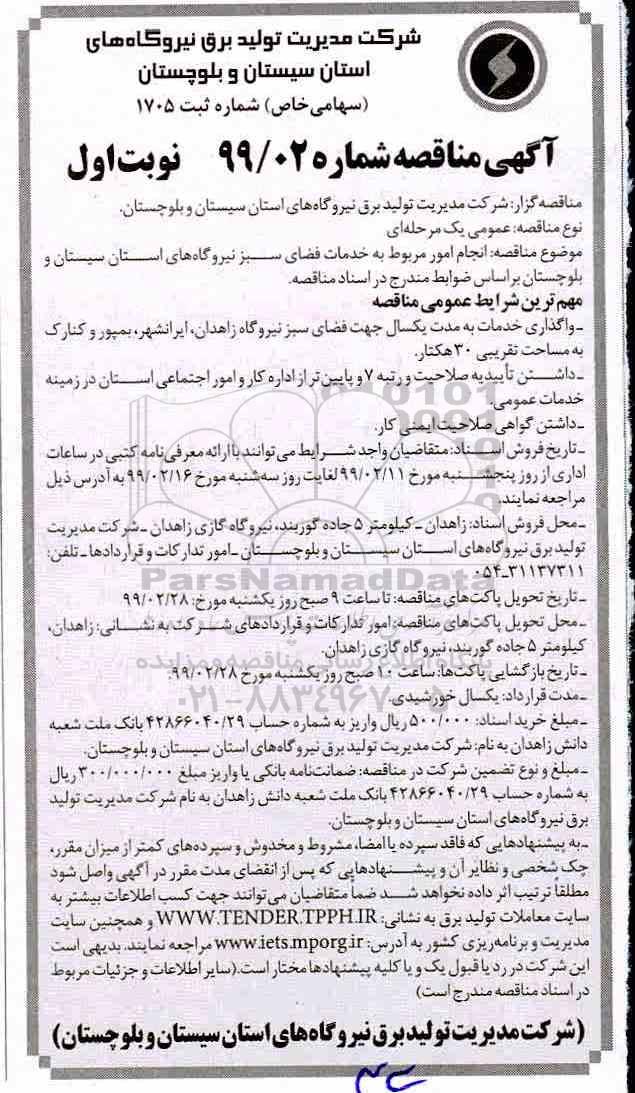 شرکت مدیریت تولید برق نیروگاه‌های
استان سیستان و بلوچستان
(سهامی خاص) شماره ثبت ۱۷۰۵
آگهی مناقصه شماره ۹۹/۰۲ نوبت اول
مناقصه گزار: شرکت مدیریت تولید برق نیروگاه‌های استان سیستان و بلوچستان.
نوع مناقصه: عمومی یک مرحله‌ای
موضوع مناقصه: انجام امور مربوط به خدمات فضای سبز نیروگاه‌های استان سیستان و
بلوچستان براساس ضوابط مندرج در اسناد مناقصه.
مهم ترین شرایط عمومی مناقصه
ـ واگذاری خدمات به مدت یکسال جهت فضای سبز نیروگاه زاهدان، ایرانشهر، بمپور و کنارک
به مساحت تقریبی ۳۰ هکتار.
ـ داشتن تأییدیه صلاحیت و رتبه ۷ و پایین تر از اداره کار و امور اجتماعی استان در زمینه
خدمات عمومی.
ـ داشتن گواهی صلاحیت ایمنی کار.
ـ تاریخ فروش اسناد: متقاضیان واجد شرایط می توانند با ارائه معرفی نامه کتبی در ساعات
اداری از روز پنجشنبه مورخ ۹۹/۰۲/۱۱ لغایت روز سه‌شنبه مورخ ۹۹/۰۲/۱۶ به آدرس ذیل
مراجعه نمایند.
ـ محل فروش اسناد: زاهدان ـ کیلومتر ۵ جاده گوربند، نیروگاه گازی زاهدان ـ شرکت مدیریت
تولید برق نیروگاه‌های استان سیستان و بلوچستان ـ امور تدارکات و قراردادها ـ تلفن:
۰۵۴-۳۱۱۳۷۳۱۱
ParsNamadData
ـ تاریخ تحویل پاکت‌های مناقصه: تا ساعت ۹ صبح روز یکشنبه مورخ: ۹۹/۰۲/۲۸
ـ محل تحویل پاکت‌های مناقصه: امور تدارکات و قراردادهای شرکت به نشانی: زاهدان،
کیلومتر ۵ جاده گوربند، نیروگاه گازی زاهدان.
پایگاه اطلاع رسانی مناقصه و مزایده
ـ تاریخ بازگشایی پاکت‌ها: ساعت ۱۰ صبح روز یکشنبه مورخ ۹۹/۰۲/۲۸.
۰۲۱-۸۸۳۴۹۶۷۰-۵
ـ مدت قرارداد: یکسال خورشیدی.
ـ مبلغ خرید اسناد: ۵۰۰/۰۰۰ ریال واریز به شماره حساب ۴۲۸۶۶۰۴۰/۲۹ بانک ملت شعبه
دانش زاهدان به نام: شرکت مدیریت تولید برق نیروگاه‌های استان سیستان و بلوچستان.
ـ مبلغ و نوع تضمین شرکت در مناقصه: ضمانت‌نامه بانکی یا واریز مبلغ ۳۰۰/۰۰۰/۰۰۰ ریال
به شماره حساب ۴۲۸۶۶۰۴۰/۲۹ بانک ملت شعبه دانش زاهدان به نام شرکت مدیریت تولید
برق نیروگاه‌های استان سیستان و بلوچستان.
ـ به پیشنهادهایی که فاقد سپرده یا امضا، مشروط و مخدوش و سپرده‌های کمتر از میزان مقرر،
چک شخصی و نظایر آن و پیشنهادهایی که پس از انقضای مدت مقرر در آگهی واصل شود
مطلقاً ترتیب اثر داده نخواهد شد ضماً متقاضیان می توانند جهت کسب اطلاعات بیشتر به
سایت معاملات تولید برق به نشانی: WWW.TENDER.TPPH.IR و همچنین سایت
مدیریت و برنامه‌ریزی کشور به آدرس: www.iets.mporg.ir مراجعه نمایند. بدیهی است
این شرکت در رد یا قبول یک و یا کلیه پیشنهادها مختار است.(سایر اطلاعات و جزئیات مربوط
در اسناد مناقصه مندرج است)
(شرکت مدیریت تولید برق نیروگاه‌های استان سیستان و بلوچستان)